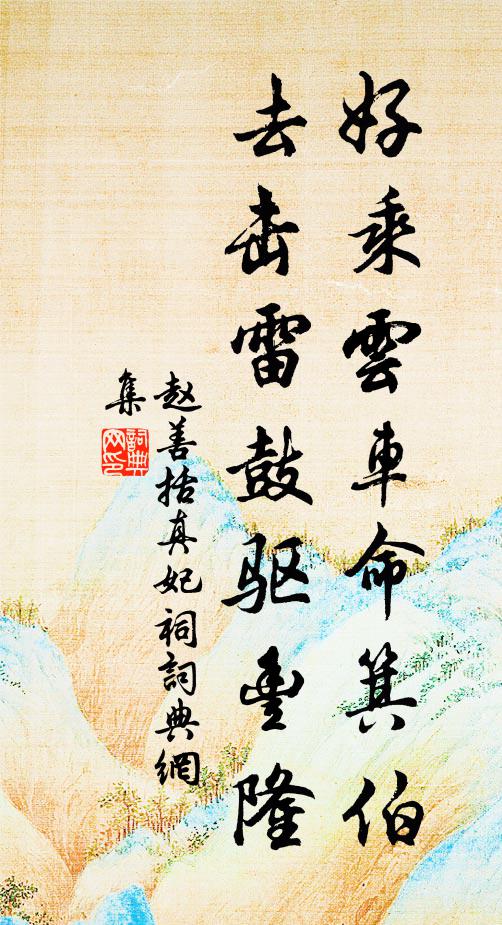 好乘雲車命箕伯
去击雷鼓驱豊隆
赵善括真妃祠詞典網
集
詞典
网印